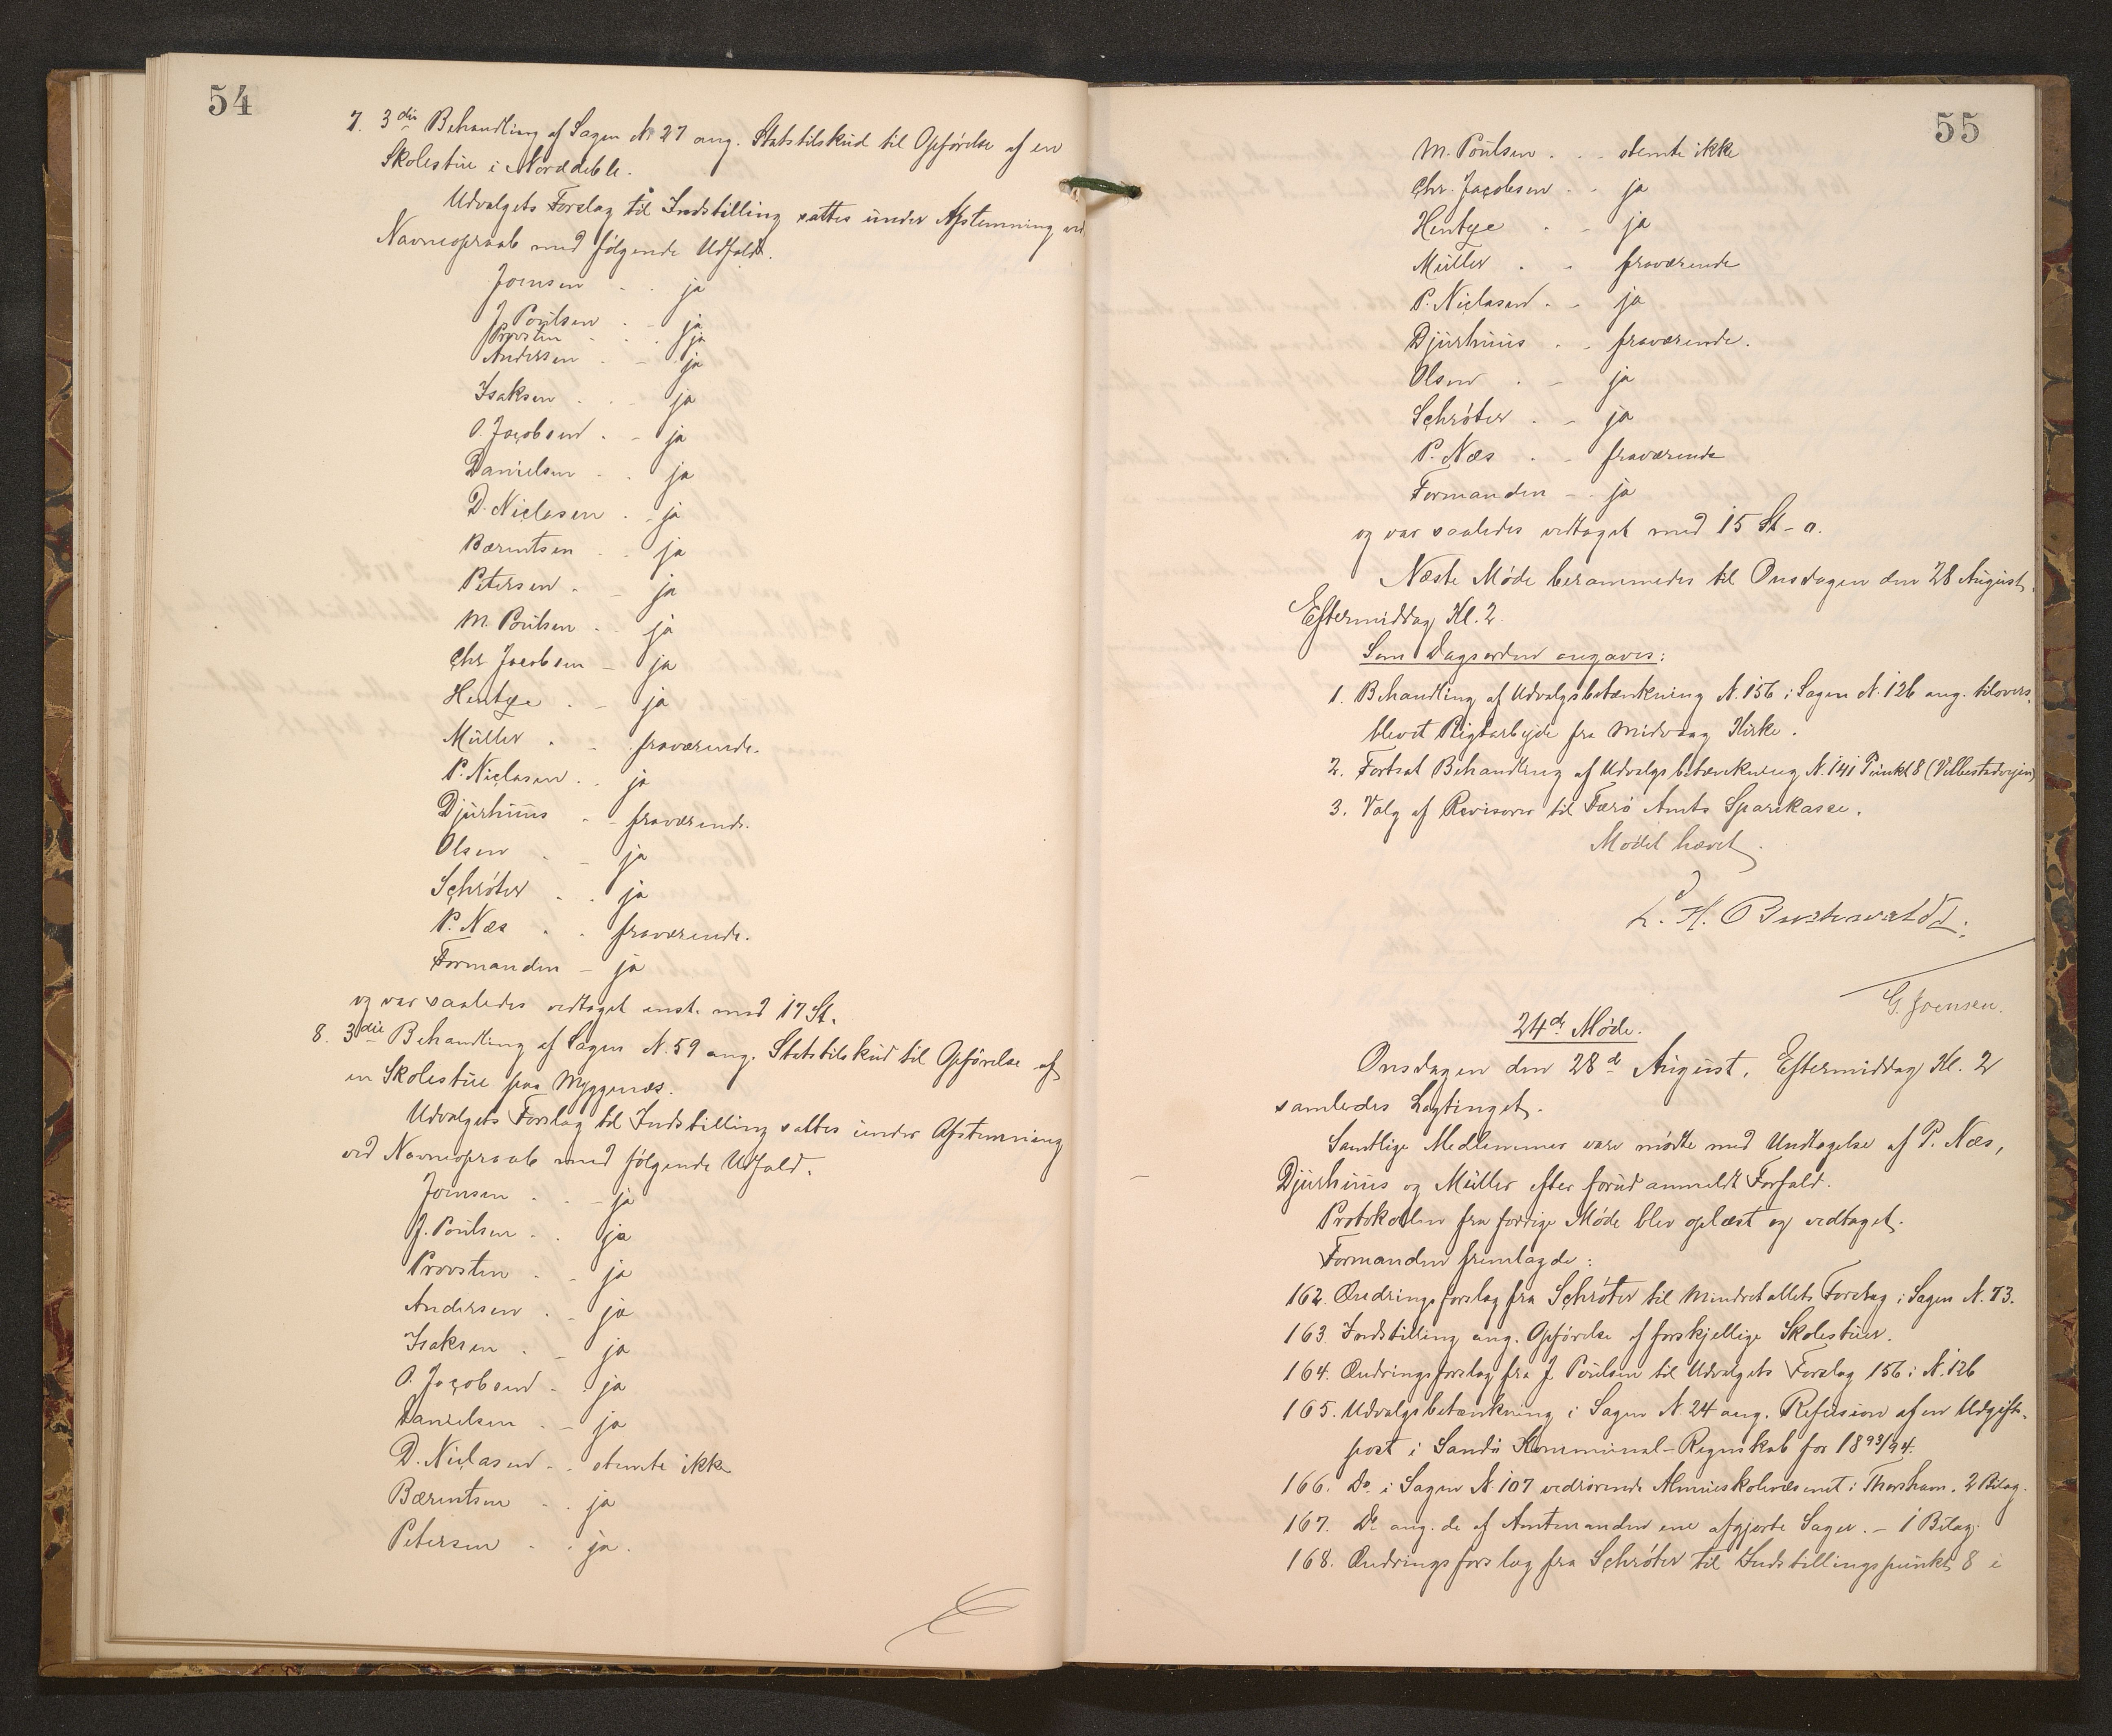 54
7. 3die Behandling af Sagen N. 27 ang. Statstilskud til Opførelse af en
Skolestue i Norddeble.
Udvalgets Forslag til Indstilling sattes under Afstemning ved
Navneopraab med følgende Udfald.
Joensen . . ja
J. Poulsen . - ja
Provsten . . . ja
Andersen . - ja
Isaksen . . - ja
O. Jacobsen . - ja
Danielsen . . ja
D. Niclasen . - ja
Bærentsen . . ja
Petersen . - ja
M. Poulsen . . ja
Chr. Jacobsen - ja
Hentze . - ja
Müller . - fraværende.
P. Niclasen . . ja
Djurhuus . - fraværende.
Olsen . - ja
Schrøter . . ja
P. Næs . . fraværende.
Formanden - ja
og var saaledes vedtaget enst. med 17 St.
8. 3die Behandling af Sagen N. 59 ang. Statstilskud til Opførelse af
en Skolestue paa Myggenæs.
Udvalgets Forslag til Indstilling sattes under Afstemning
ved Navneopraab med følgende Udfald.
Joensen . . - ja
J. Poulsen . . ja
Provsten . - ja
Andersen . - ja
Isaksen . - ja
O. Jacobsen . . ja
Danielsen . - ja
D. Niclasen . . stemte ikke
Bærentsen . . ja
Petersen . . ja.
55
M. Poulsen . . - stemte ikke
Chr. Jacobsen . - ja
Hentze . - ja
Müller . - fraværende
P. Niclasen . - ja
Djurhuus . - fraværende.
Olsen . - ja
Schrøter . - ja
P. Næs . - fraværende
Formanden - . ja
og var saaledes vedtaget med 15 St - 0.
Næste Møde berammedes til Onsdagen den 28 August,
Eftermiddag Kl. 2
Som Dagsorden angaves:
1. Behandling af Udvalgsbetænkning N. 156 i Sagen N. 126 ang. tilovers
blevet Pigtarbejde fra Midvaag Kirke.
2. Fortsat Behandling af Udvalgsbetænkning N. 141 Punkt 8 (Velbestadvejen)
3. Valg af Revisorer til Færø Amts Sparekasse.
Mødet hævet.
L. H. Buchwaldt.
G. Joensen.
24de Møde.
Onsdagen den 28d August, Eftermiddag Kl. 2
samledes Lagtinget.
Samtlige Medlemmer vare mødte med Undtagelse af P. Næs,
Djurhuus og Müller efter forud anmeldt Forfald.
Protokollen fra forrige Møde blev oplæst og vedtaget.
Formanden fremlagde:
162. Ændringsforslag fra Schrøter til Mindretallets Forslag i Sagen N. 73.
163. Indstilling ang. Opførelse af forskjellige Skolestuer.
164. Ændringsforslag fra J. Poulsen til Udvalgets Forslag 156 i N. 126
165. Udvalgsbetænkning i Sagen N. 24 ang. Refusion af en Udgifts-
post i Sandø Kommunal-Regnskab for 1893/94.
166. Do i Sagen N. 107 vedrørende Almueskolevæsenet i Thorshavn. 2 Bilag.
167. Do ang. de af Amtmanden ene afgjorte Sager. - 1 Bilag.
168. Ændringsforslag fra Schrøter til Indstillingspunkt 8 i